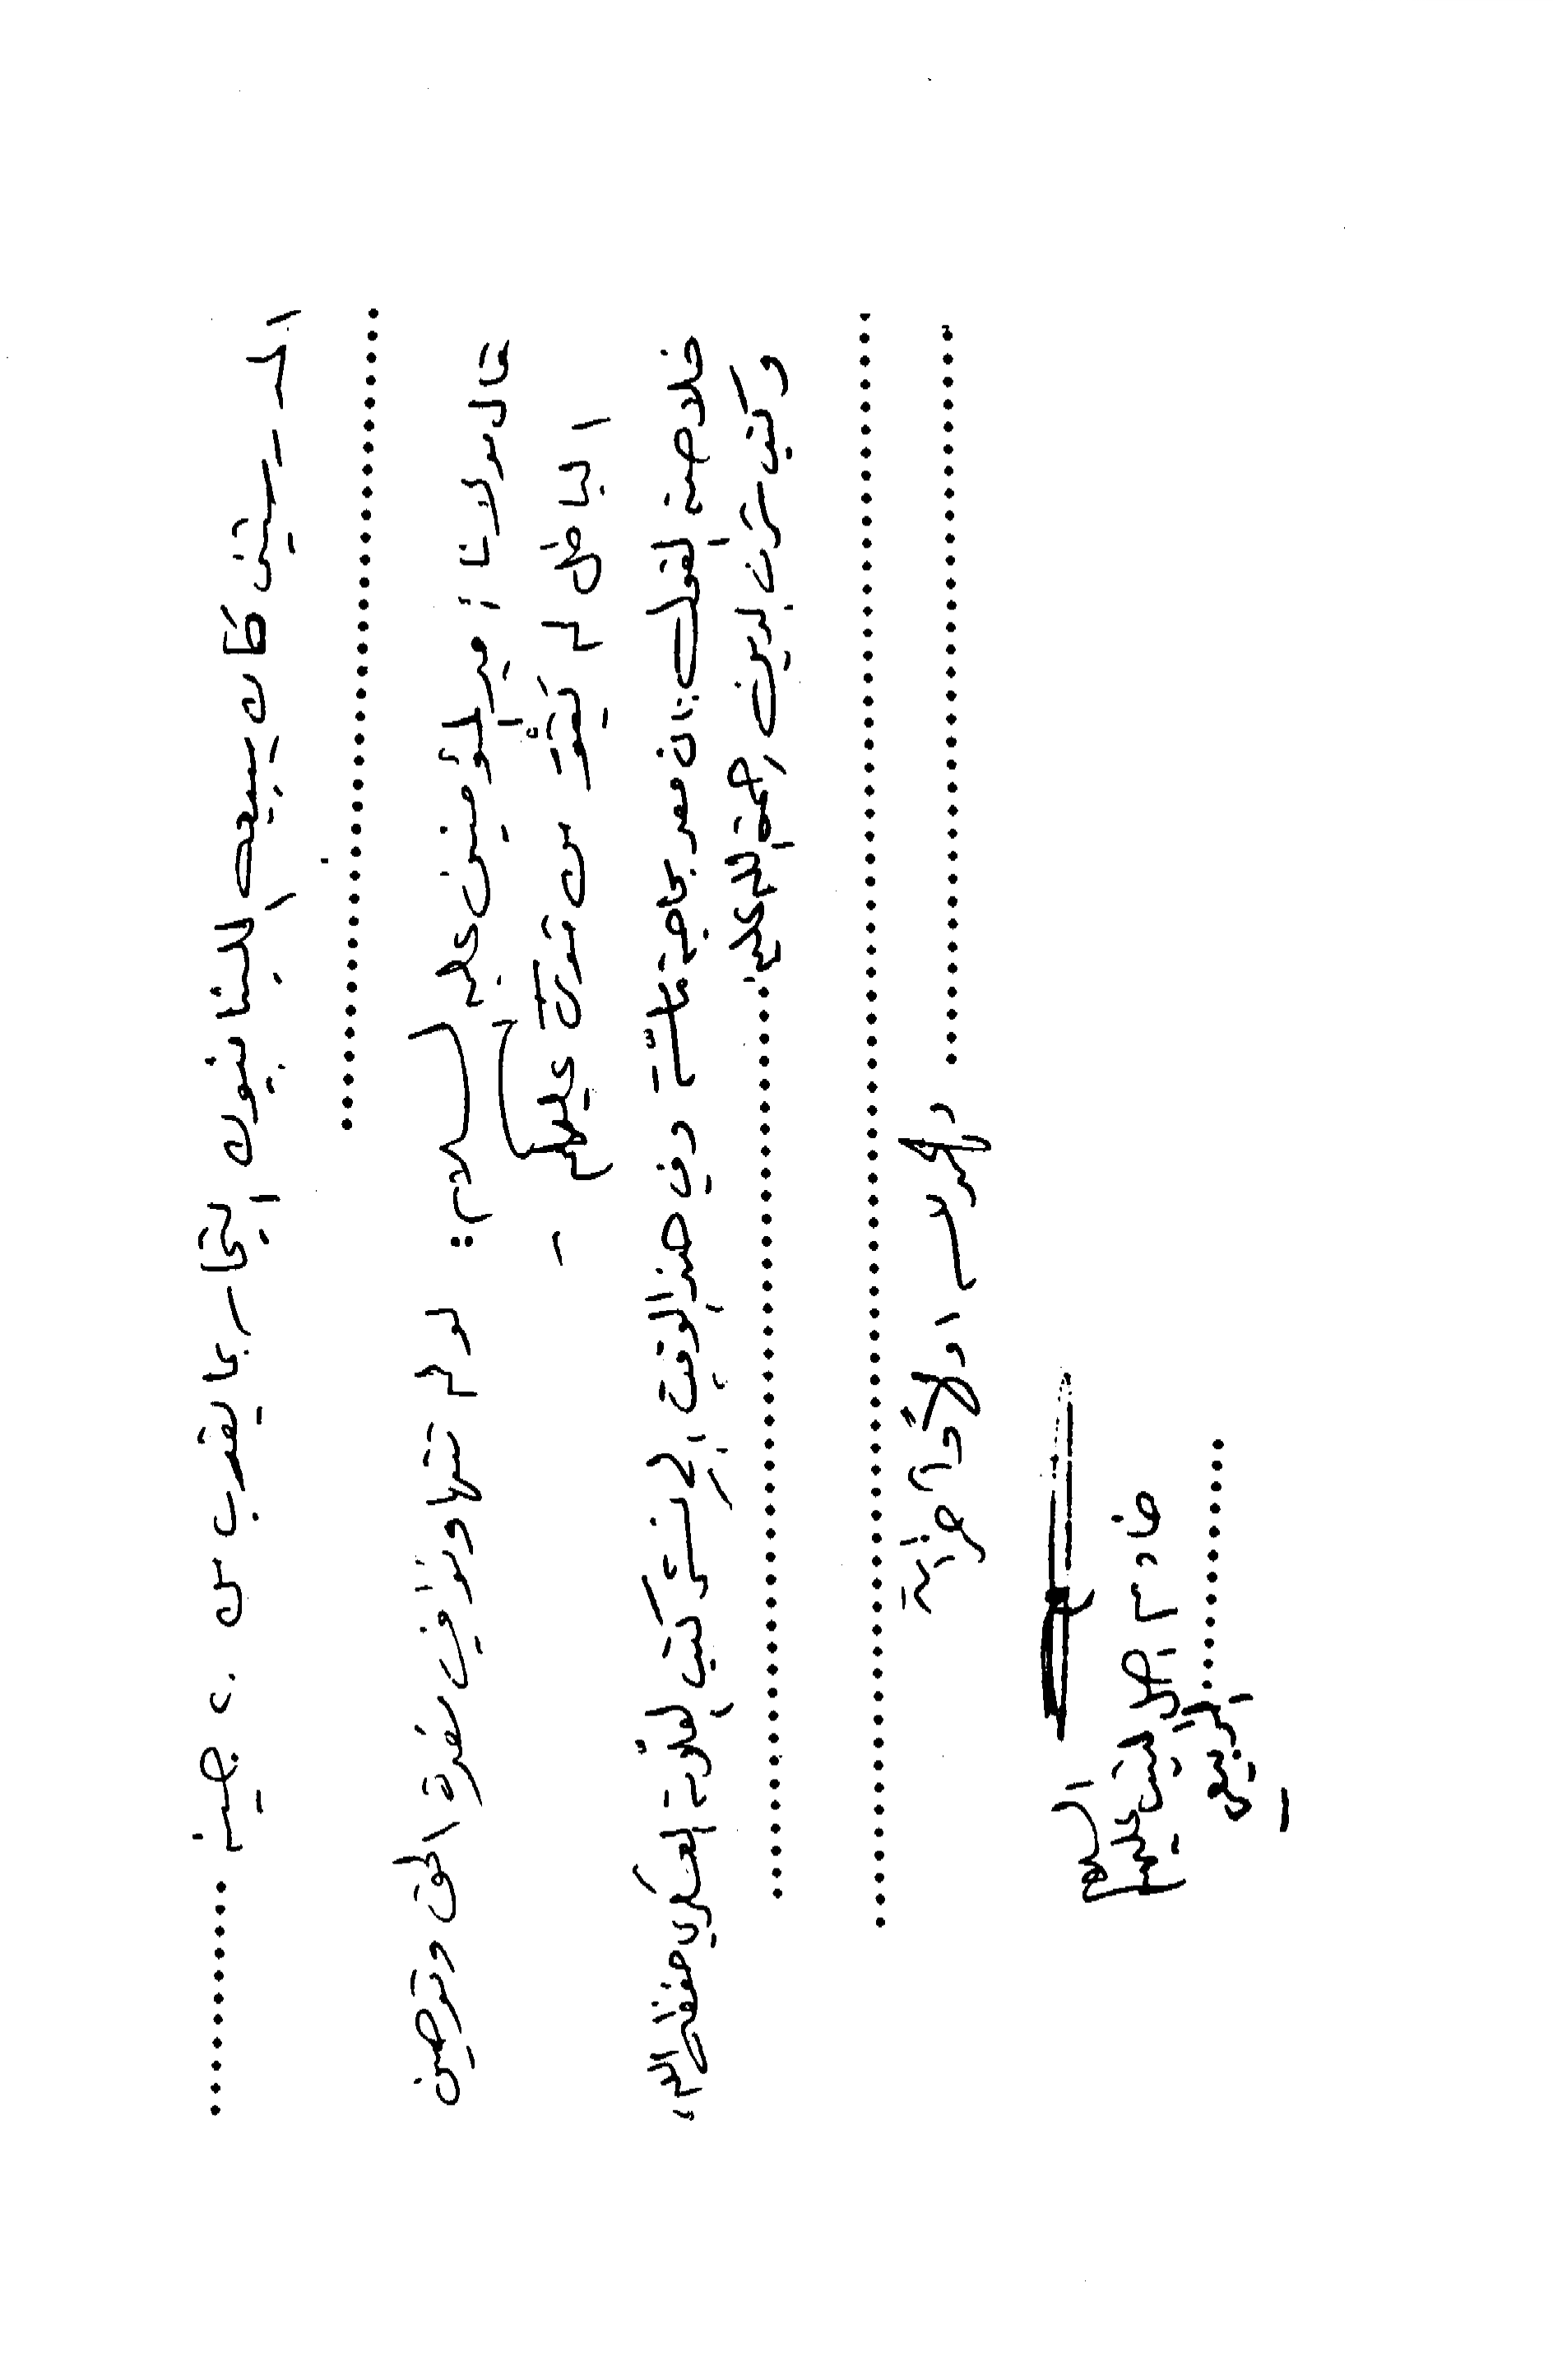 المدرستين كان يبيعه اللبنانيون التجار بما يقرب من ٢٠ جنيه ..........
قال مولانا أمير المؤمنين عليه السلام: لو لم تتهاونوا في نصرة الحق وتوهين
الباطل لم يَقْوَ من قوي عليكم -
خلاصة القول: ان مصر بحاجة ماسّة وفي هذا الوقت إلى نشر كتب العلّامة العسكري حفظه الله،
وكتب شرف الدين رحمة الله عليه
والحمد لله اولاً وآخراً
خادم اهل البيت عليهم السلام